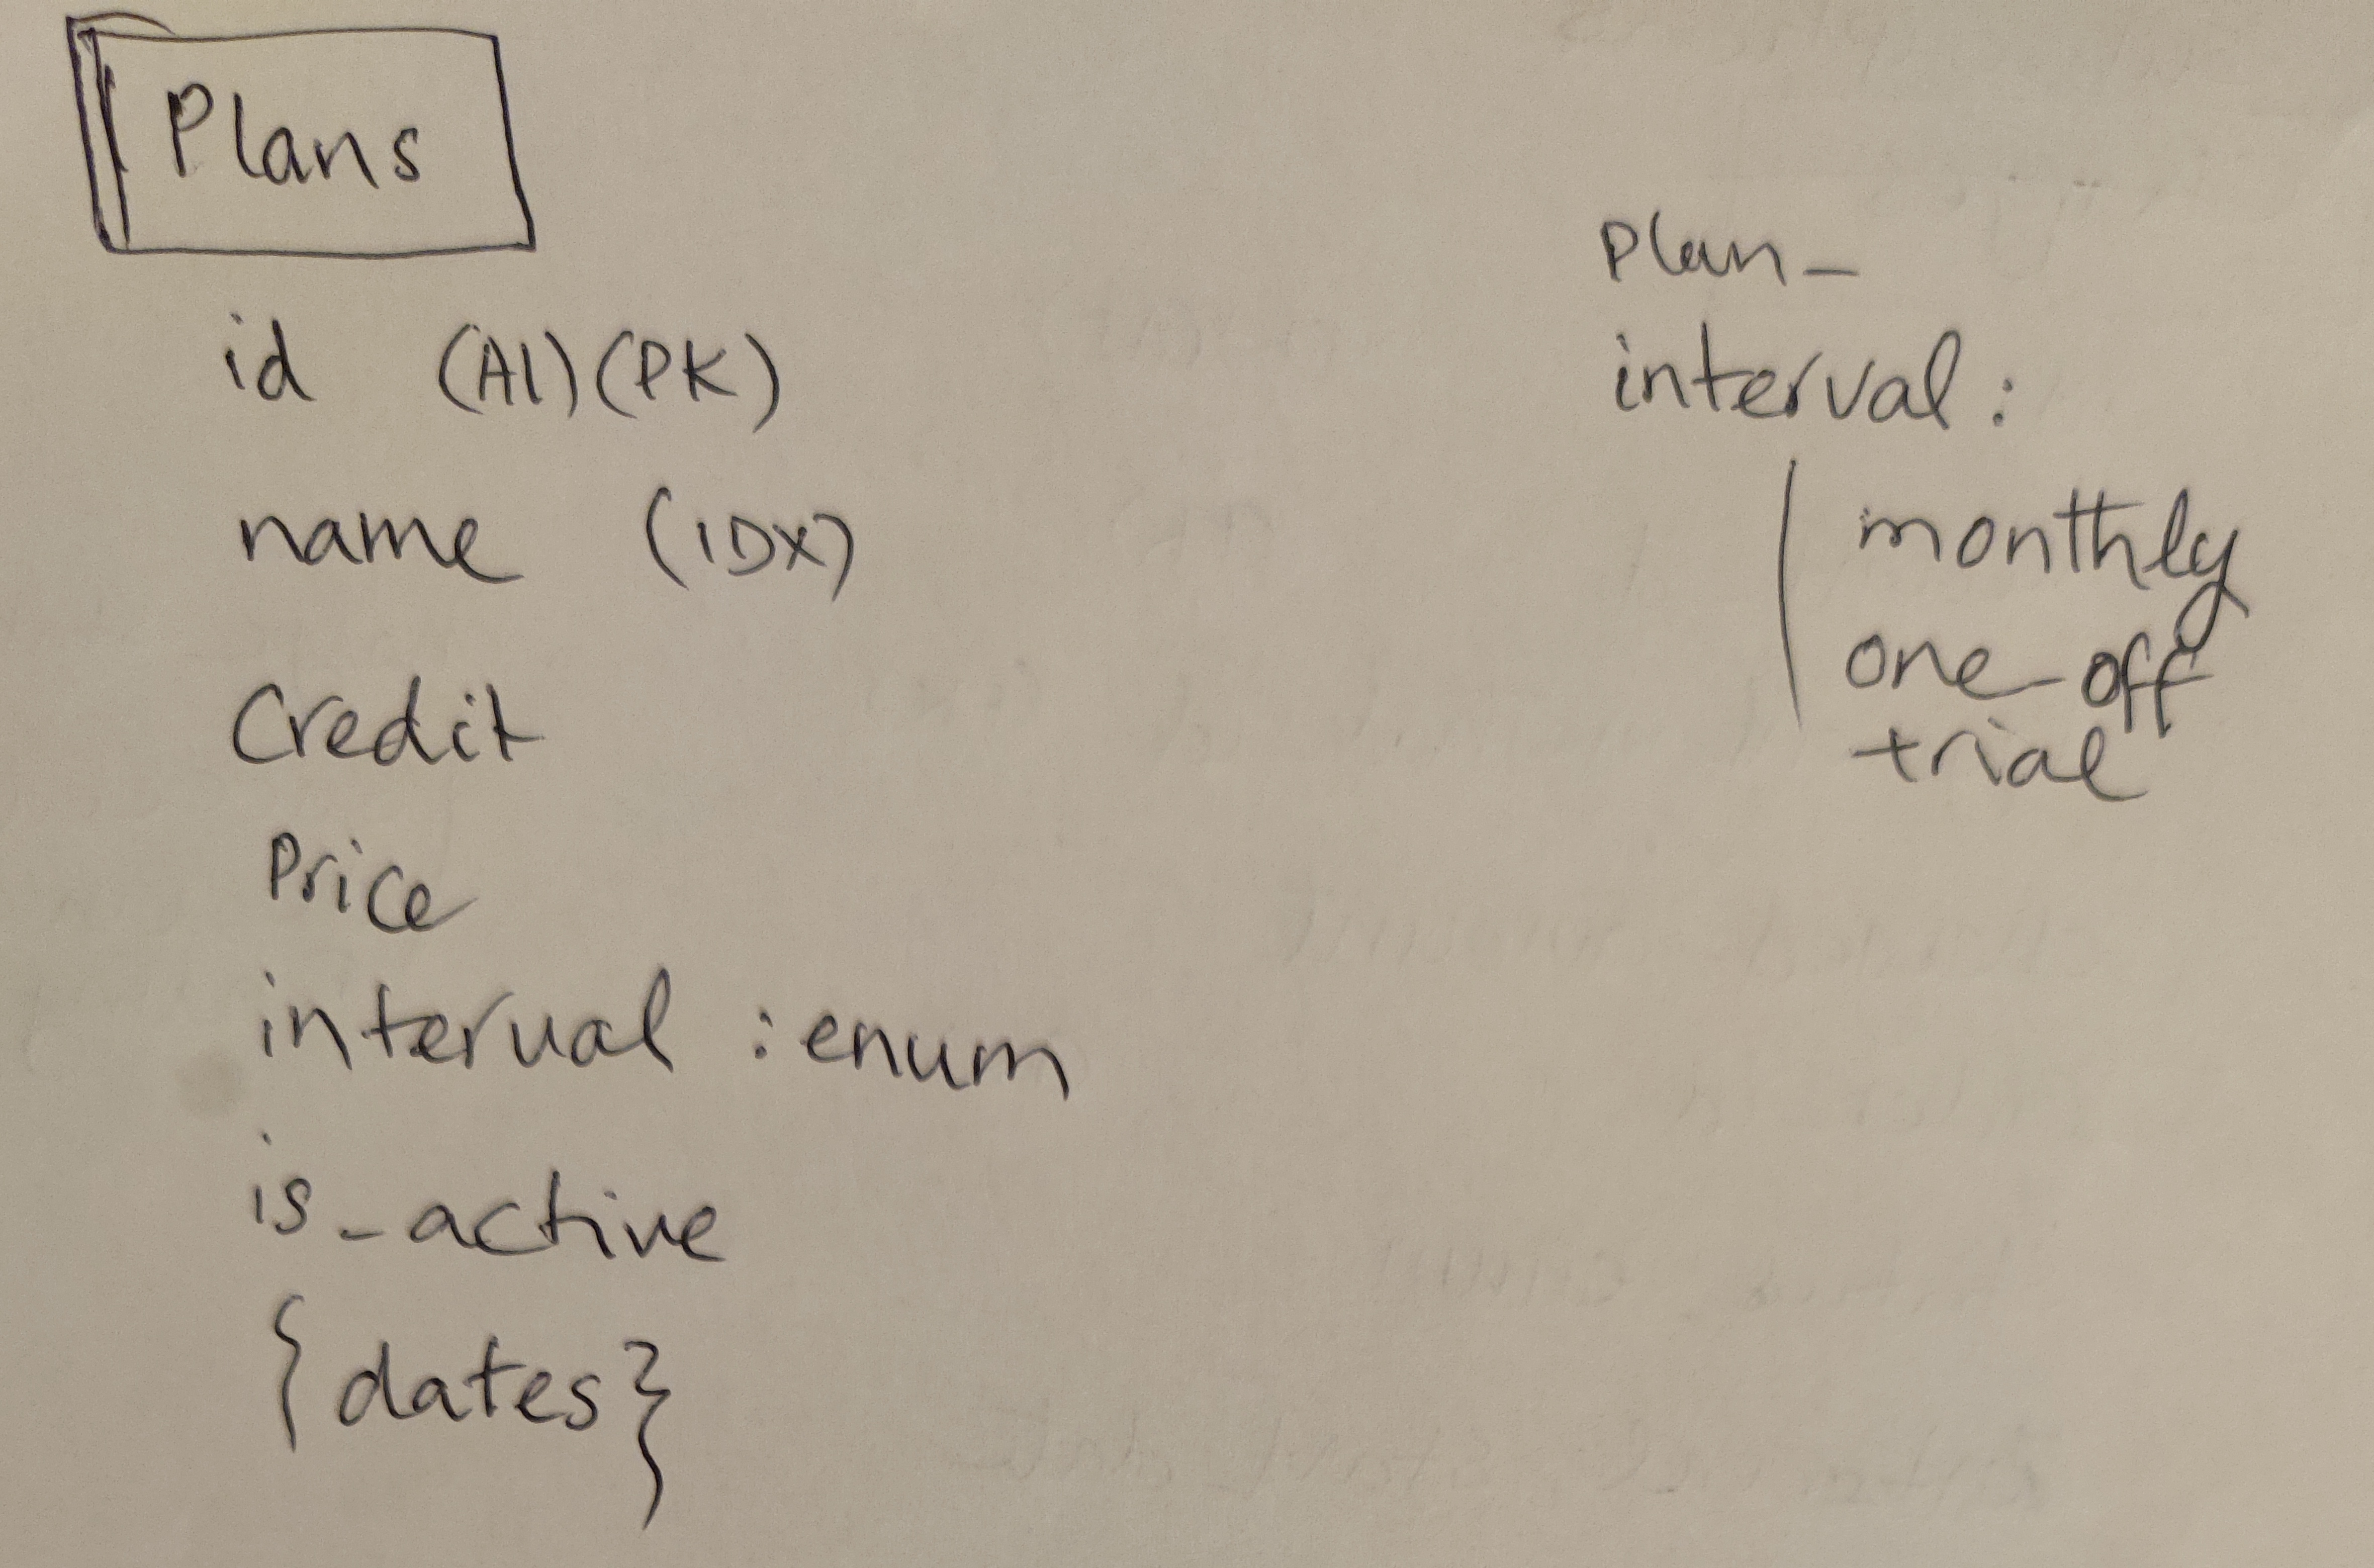 Plans
id (AI) (PK)
name (IDX)
Credit
Price
interval : enum
is_active
{dates}
plan_
interval :
monthly
one-off
trial